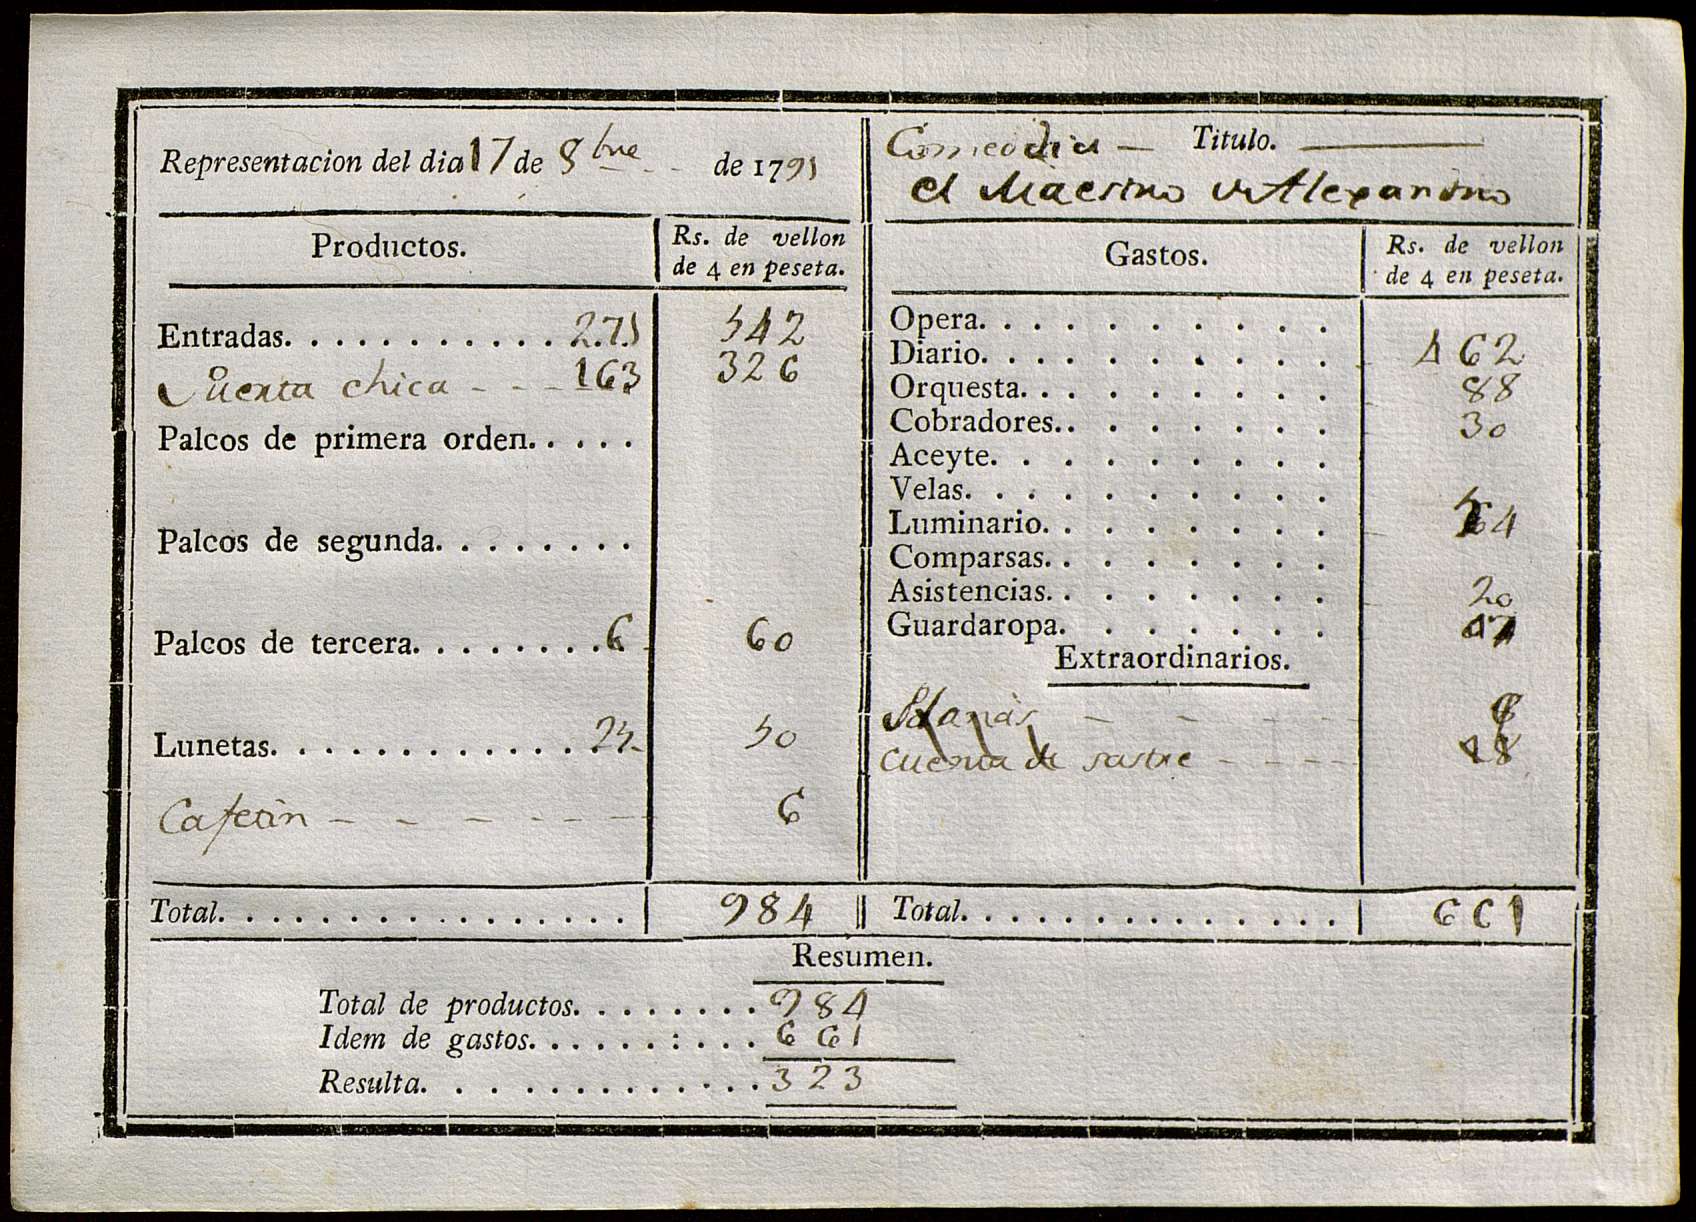 Representacion del dia 17 de 8bre de 1791
Comedia — Titulo. ———
el Maestro de Alexandro
Productos. Rs. de vellon de 4 en peseta.
Entradas. . . . . . . . . . . . 271 542
Puerta chica - - - 163 326
Palcos de primera orden. . . . .
Palcos de segunda. . . . . . . .
Palcos de tercera. . . . . . . . 6 60
Lunetas. . . . . . . . . . . . . 25 50
Cafetin - - - - - - - 6
Total. . . . . . . . . . . . . . . . 984
Gastos. Rs. de vellon de 4 en peseta.
Opera. . . . . . . . . .
Diario. . . . . . . . . . 462
Orquesta. . . . . . . . . 88
Cobradores. . . . . . . . 30
Aceyte. . . . . . . . . .
Velas. . . . . . . . . .
Luminario. . . . . . . .
Comparsas. . . . . . . .
Asistencias. . . . . . . . 20
Guardaropa. . . . . . .
Extraordinarios.
cuenta de sastre - - - -
Total. . . . . . . . . . . . . . 661
Resumen.
Total de productos. . . . . . . . 984
Idem de gastos. . . . . . : . . . 661
Resulta. . . . . . . . . . . . . 323